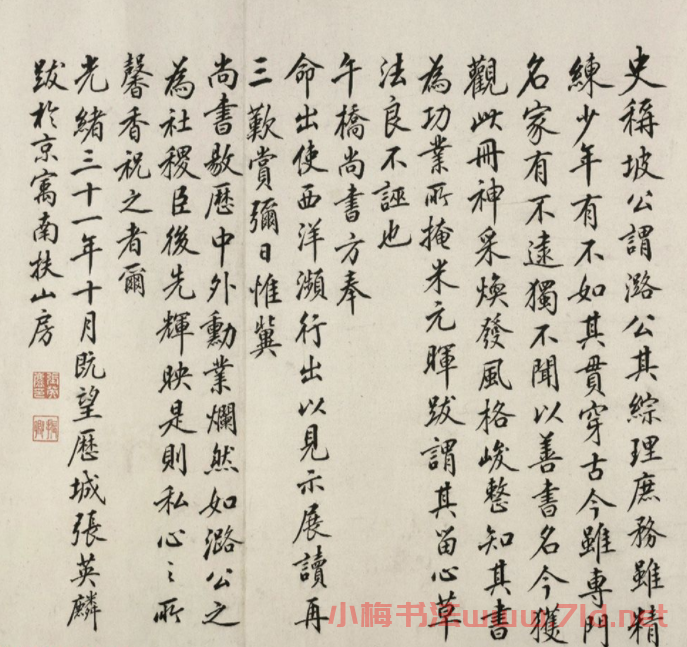 史稱坡公謂潞公其綜理庶務雖精
練少年有不如其貫穿古今雖專門
名家有不逮獨不聞以善書名今獲
觀此冊神采煥發風格峻整知其書
為功業所掩米元暉跋謂其留心草
法良不誣也
午橋尚書方奉
命出使西洋瀕行出以見示展讀再
三歎賞彌日惟冀
尚書敭歷中外勳業爛然如潞公之
為社稷臣後先輝映是則私心之所
馨香祝之者爾
光緒三十一年十月既望歷城張英麟
跋於京寓南扶山房
小梅书法www.w7ld.net